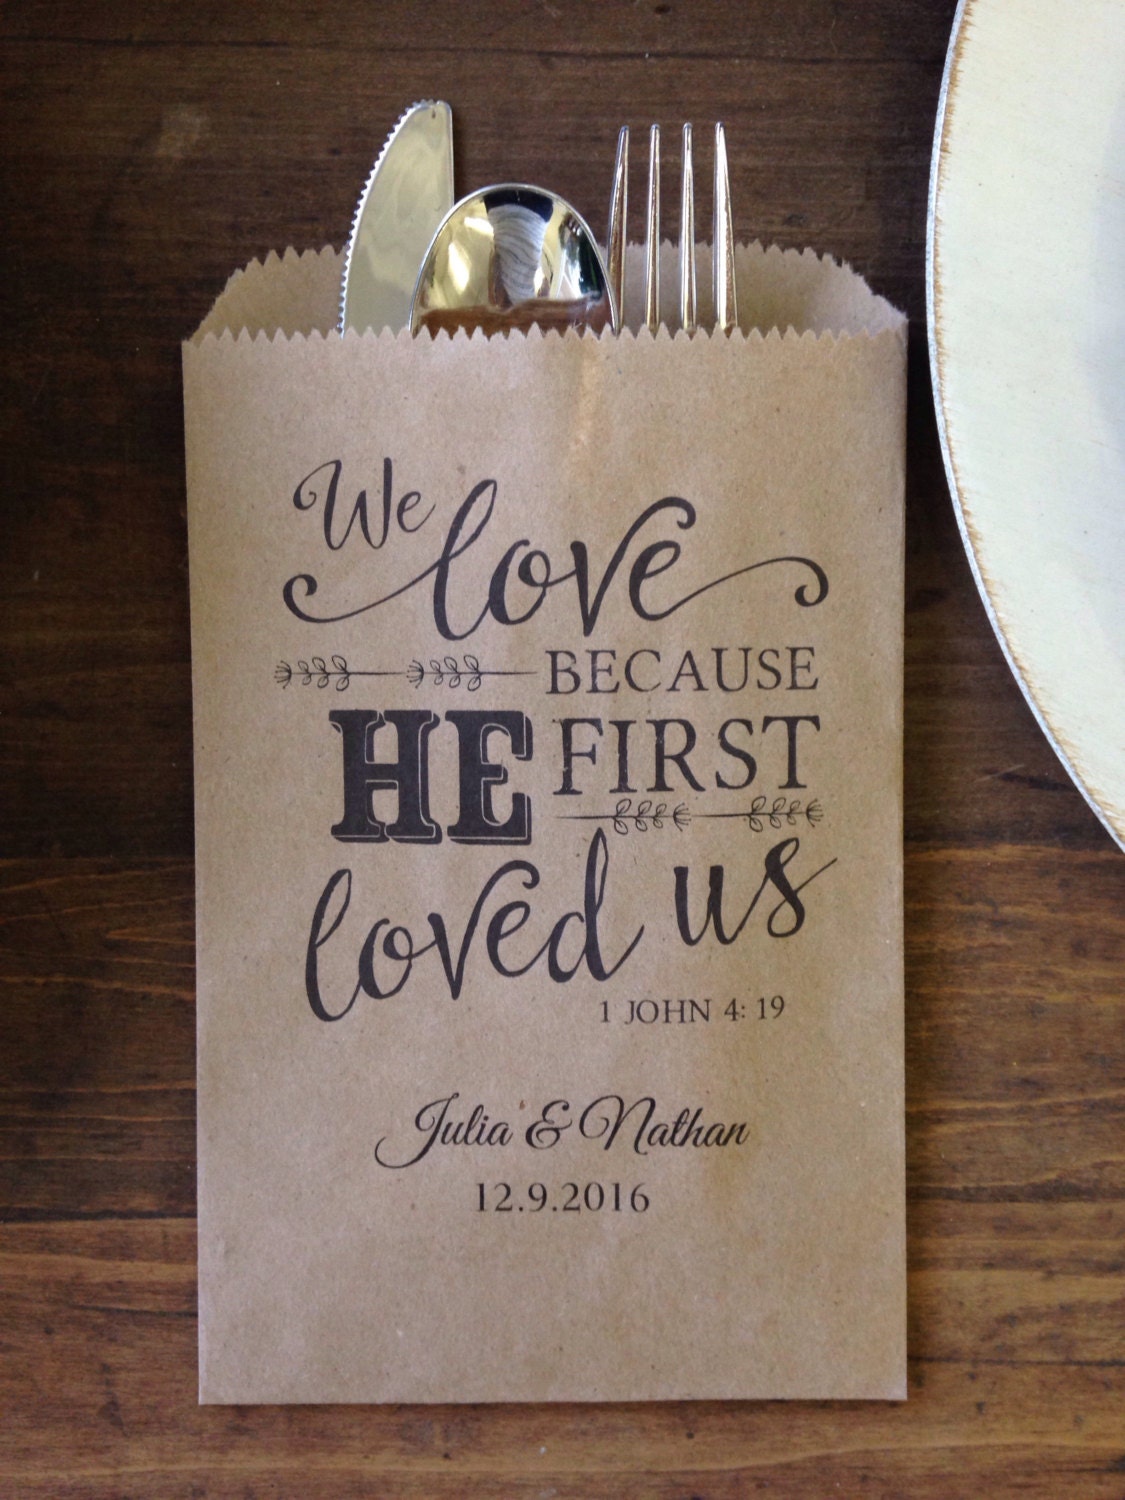 We
love
BECAUSE
HE FIRST
loved us
1 JOHN 4: 19
Julia & Nathan
12.9.2016